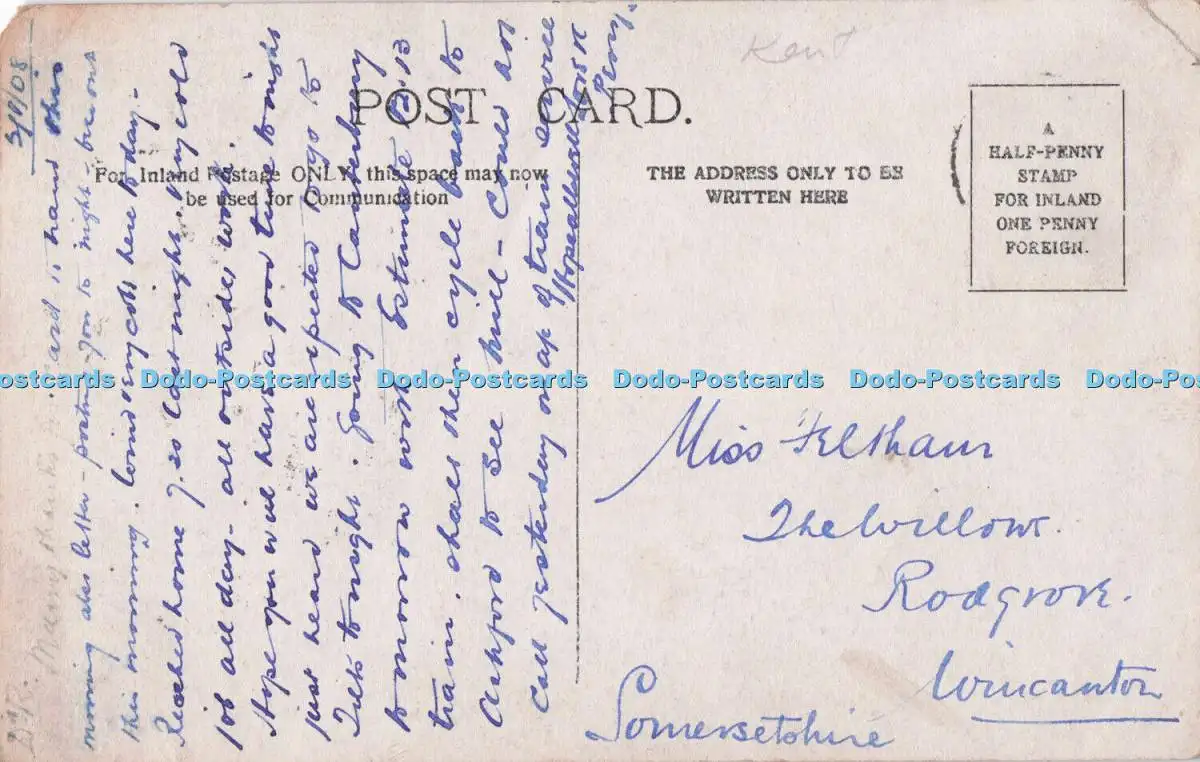 Kent
POST CARD.
For Inland Postage ONLY, this space may now
be used for Communication
THE ADDRESS ONLY TO BE
WRITTEN HERE
A
HALF-PENNY
STAMP
FOR INLAND
ONE PENNY
FOREIGN.
08
Many thanks card to hand this
morning also letter - posting you to night - one
this morning. here to day -
Reached home 7.20 last night. my cold
job all day - all outside work.
Hope you will have a good time to night
just heard we are expected to go to
to night. Going to Canterbury
to morrow work Faturnel 12.13
train. shall then cycle back to
Ashford to see - Could not
call yesterday on ap of train service
Hope all well
Percy.
Miss Feltham
The Willows.
Rodgrove.
Wincanton
Somersetshire
Dodo-Postcards Dodo-Postcards Dodo-Postcards Dodo-Postcards Dodo-Postcards Dodo-Postcards